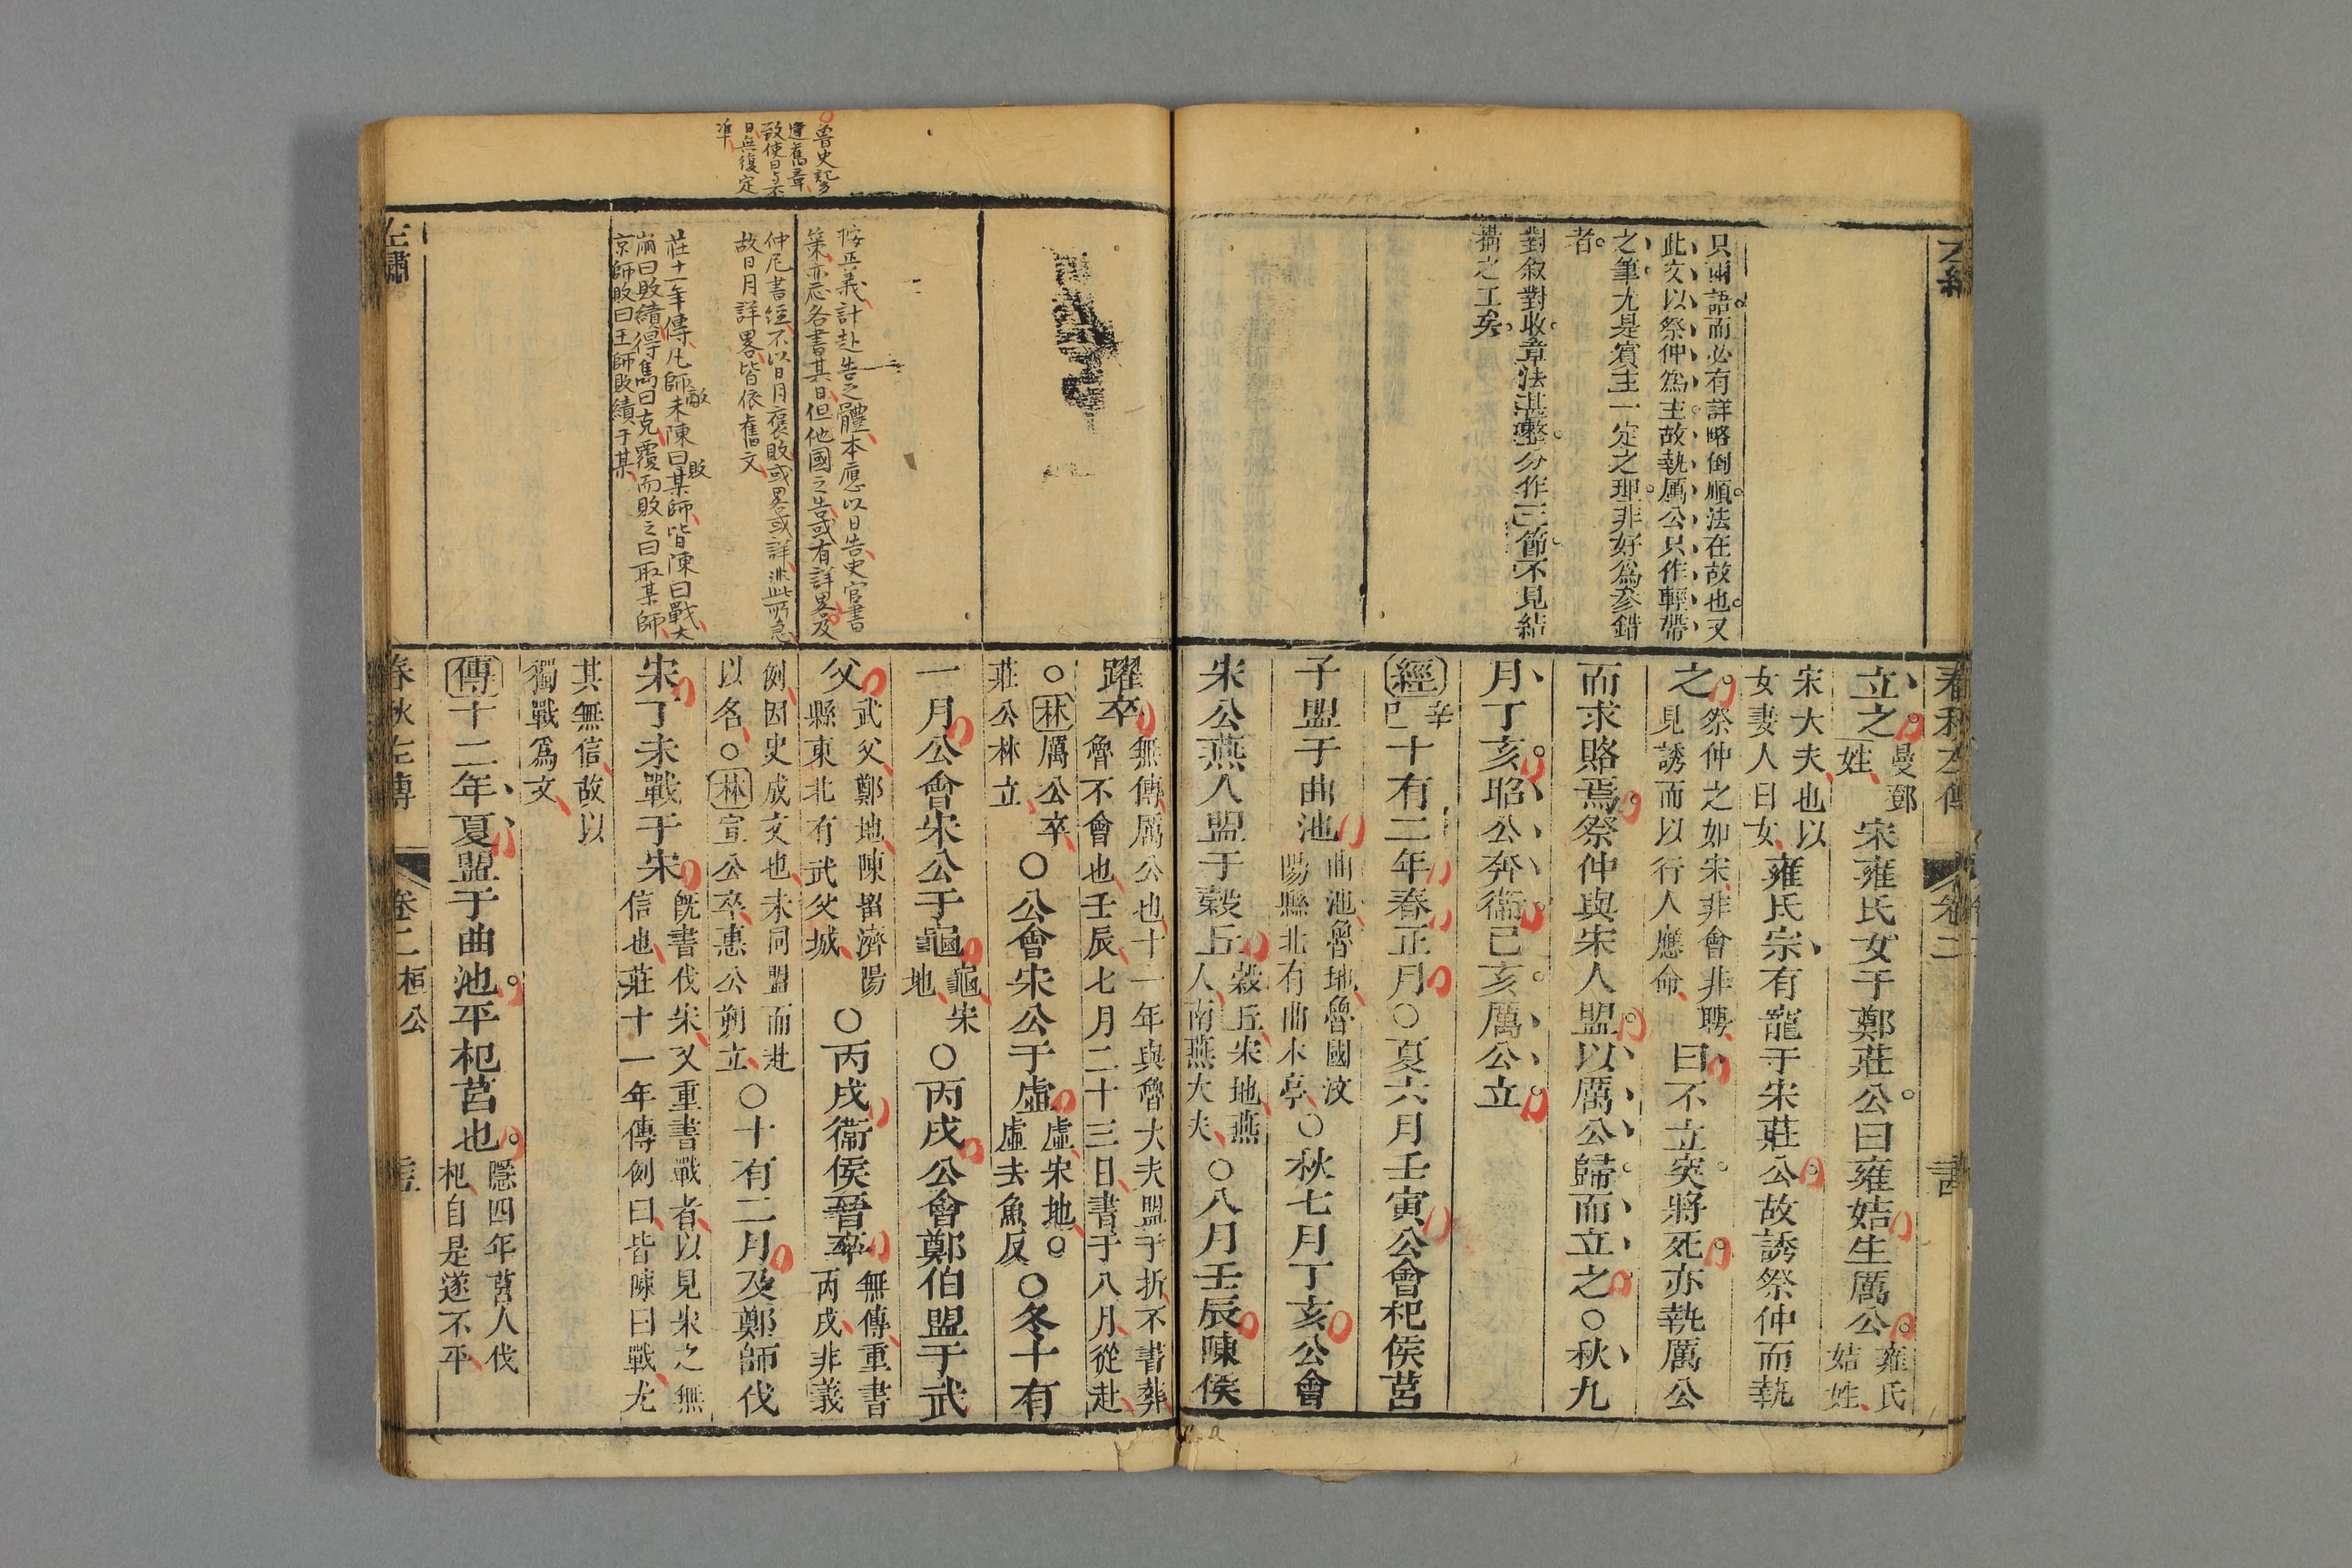 只兩語而必有詳略倒順法在故也又
此文以祭仲爲主故執厲公只作輕帶
之筆尤是賓主一定之理非好爲參錯
者
對敘對收章法甚整分作三節不見結
搆之工矣
春秋左傳
卷二
立之曼鄧姓宋雍氏女于鄭莊公曰雍姞生厲公雍氏姞姓
宋大夫也以女妻人曰女雍氏宗有寵于宋莊公故誘祭仲而執
之祭仲之如宋非會非聘見誘而以行人應命曰不立突將死亦執厲公
而求賂焉祭仲與宋人盟以厲公歸而立之○秋九
月丁亥昭公奔衞己亥厲公立
經辛巳十有二年春正月○夏六月壬寅公會杞侯莒
子盟于曲池曲池魯地魯國汶陽縣北有曲水亭○秋七月丁亥公會
宋公燕人盟于穀丘穀丘宋地燕人南燕大夫○八月壬辰陳侯
魯史記多
違舊章
致使日与不
日無復定
準
按正義計赴告之體本應以日告史官書
策亦應各書其日但他國之告或有詳畧及
仲尼書經不以日月褒貶或畧或詳非此所急
故日月詳畧皆依舊文
莊十一年傳凡師敵未陳曰敗某師皆陳曰戰大
崩曰敗績得儁曰克覆而敗之曰取某師
京師敗曰王師敗績于某
躍卒無傳厲公也十一年與魯大夫盟于折不書葬魯不會也壬辰七月二十三日書于八月從赴
○林厲公卒莊公林立○公會宋公于虛虛宋地○虛去魚反○冬十有
一月公會宋公于龜龜宋地○丙戌公會鄭伯盟于武
父武父鄭地陳留濟陽縣東北有武父城○丙戌衞侯晉卒無傳重書丙戌非義
例因史成文也未同盟而赴以名○林宣公卒惠公朔立○十有二月及鄭師伐
宋丁未戰于宋既書伐宋又重書戰者以見宋之無信也莊十一年傳例曰皆陳曰戰尤
其無信故以獨戰爲文
傳十二年夏盟于曲池平杞莒也隱四年莒人伐杞自是遂不平
左繡
春秋左傳
卷二
桓公